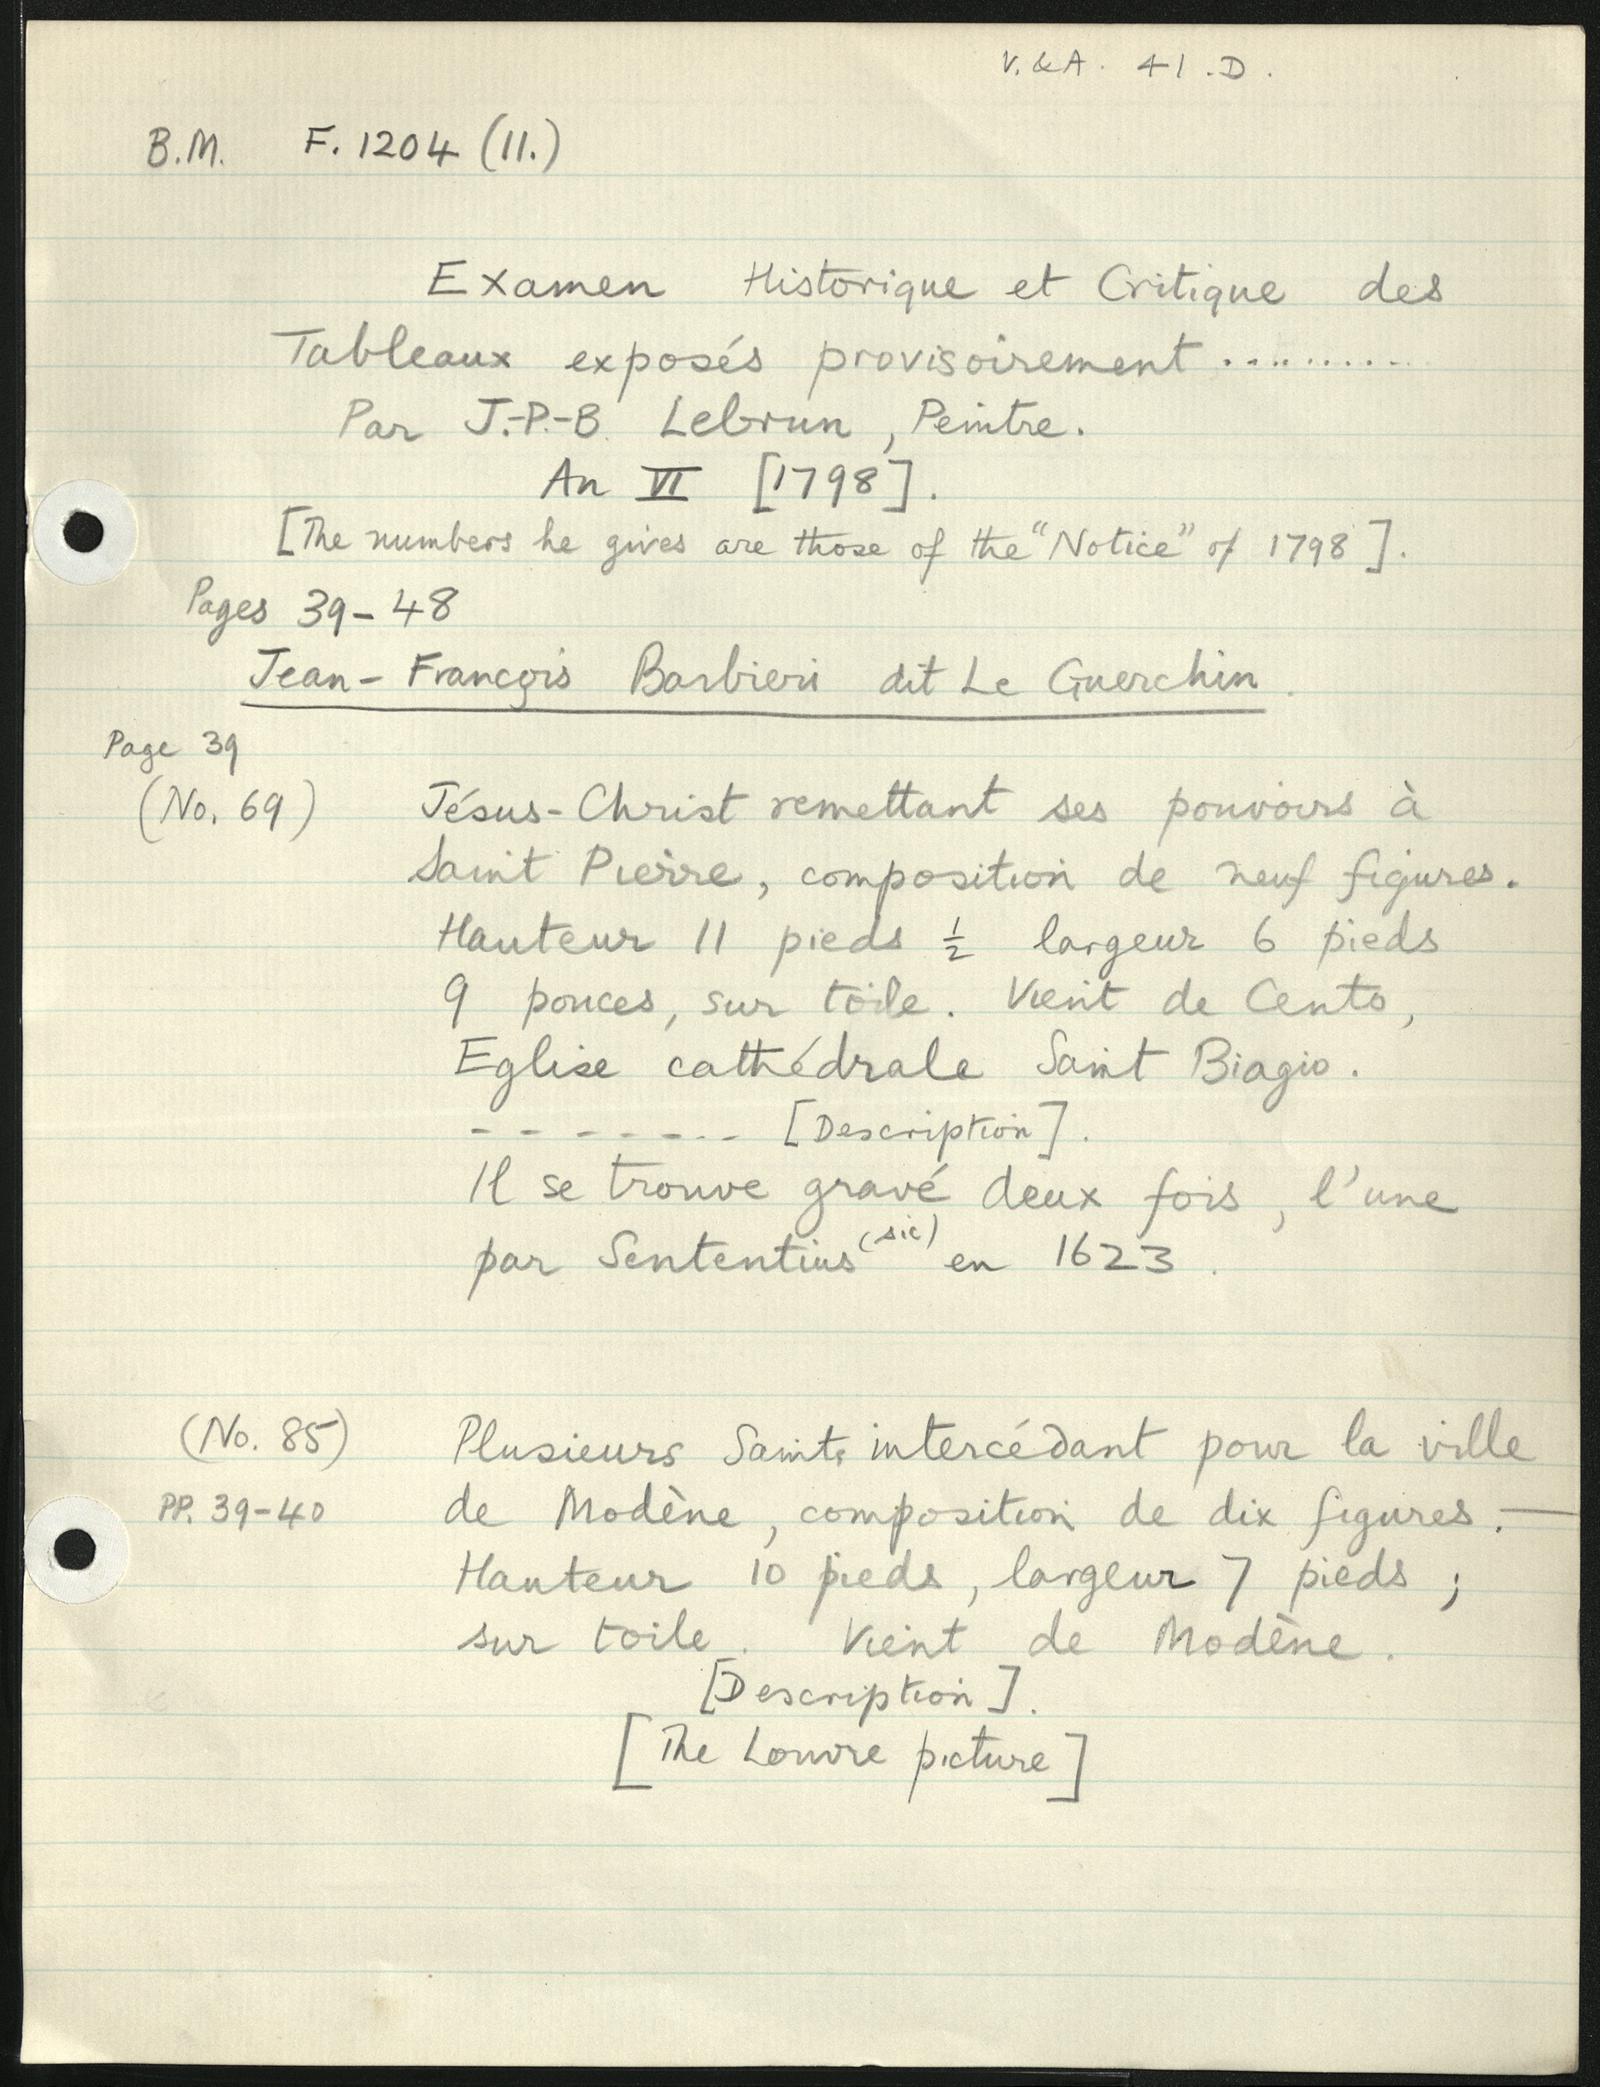 V. & A. 41.D.
B.M. F. 1204 (11.)
Examen Historique et Critique des
Tableaux exposés provisoirement ...........
Par J.-P.-B. Lebrun, Peintre.
An VI [1798].
[The numbers he gives are those of the "Notice" of 1798].
Pages 39-48
Jean-François Barbieri dit Le Guerchin.
Page 39
(No. 69) Jésus-Christ remettant ses pouvoirs à
Saint Pierre, composition de neuf figures.
Hauteur 11 pieds ½ largeur 6 pieds
9 pouces, sur toile. Vient de Cento,
Eglise cathédrale Saint Biagio.
-------- [Description].
Il se trouve gravé deux fois, l'une
par Sententius (sic) en 1623.
(No. 85) Plusieurs Saints intercédant pour la ville
PP. 39-40 de Modène, composition de dix figures. —
Hauteur 10 pieds, largeur 7 pieds ;
sur toile. Vient de Modène.
[Description].
[The Louvre picture]